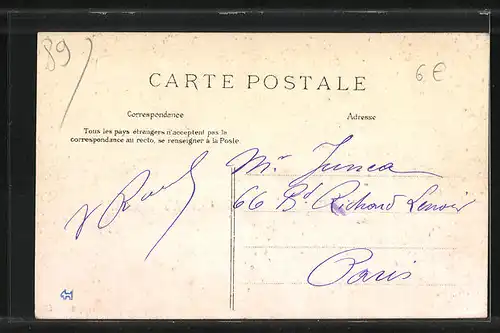 89
6€
CARTE POSTALE
Correspondance
Adresse
Tous les pays étrangers n'acceptent pas la
correspondance au recto, se renseigner à la Poste.
Mr
66 Bd Richard Lenoir
Paris